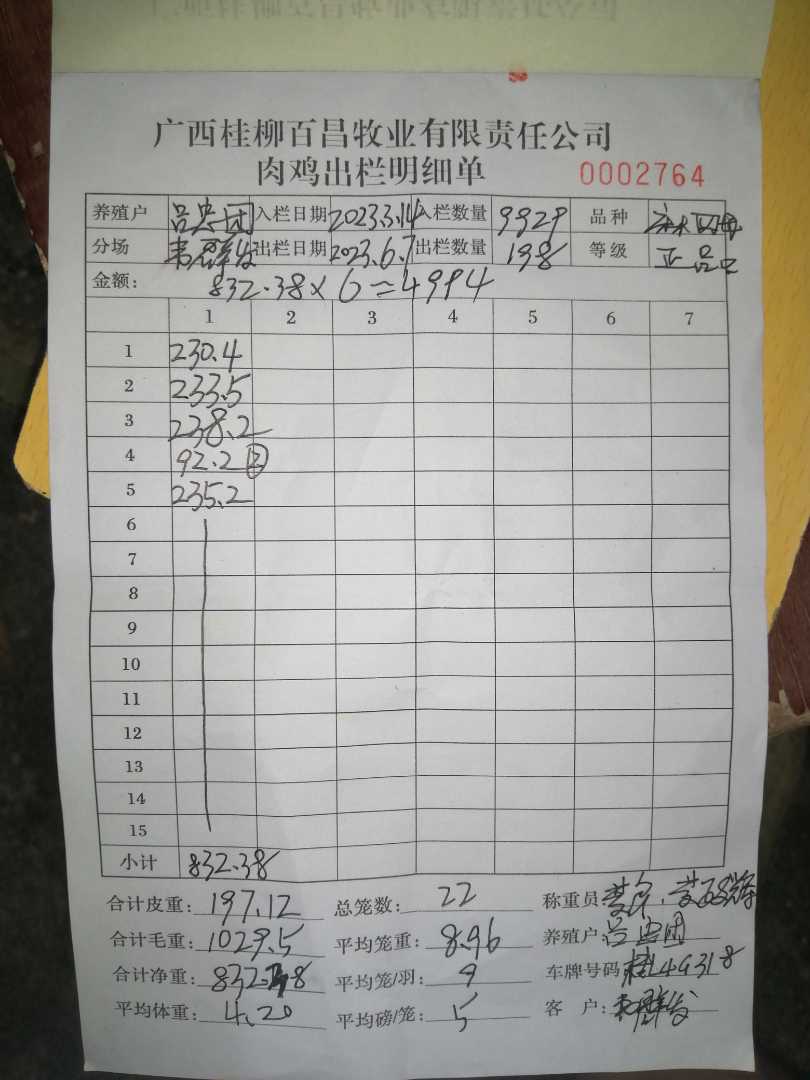 广西桂柳百昌牧业有限责任公司
肉鸡出栏明细单 0002764
养殖户 入栏日期 2023.3.14 入栏数量 9929 品种
分场 韦群发 出栏日期 2023.6.7 出栏数量 198 等级 正品
金额: 832.38×6=4994
1 2 3 4 5 6 7
1 230.4
2 233.5
3 238.2
4 92.2 ②
5 235.2
6
7
8
9
10
11
12
13
14
15
小计 832.38
合计皮重: 197.12 总笼数: 22 称重员:
合计毛重: 1029.5 平均笼重: 8.96 养殖户:
合计净重: 832.38 平均笼/羽: 9 车牌号码 桂L49318
平均体重: 4.20 平均磅/笼: 5 客 户: 韦群发